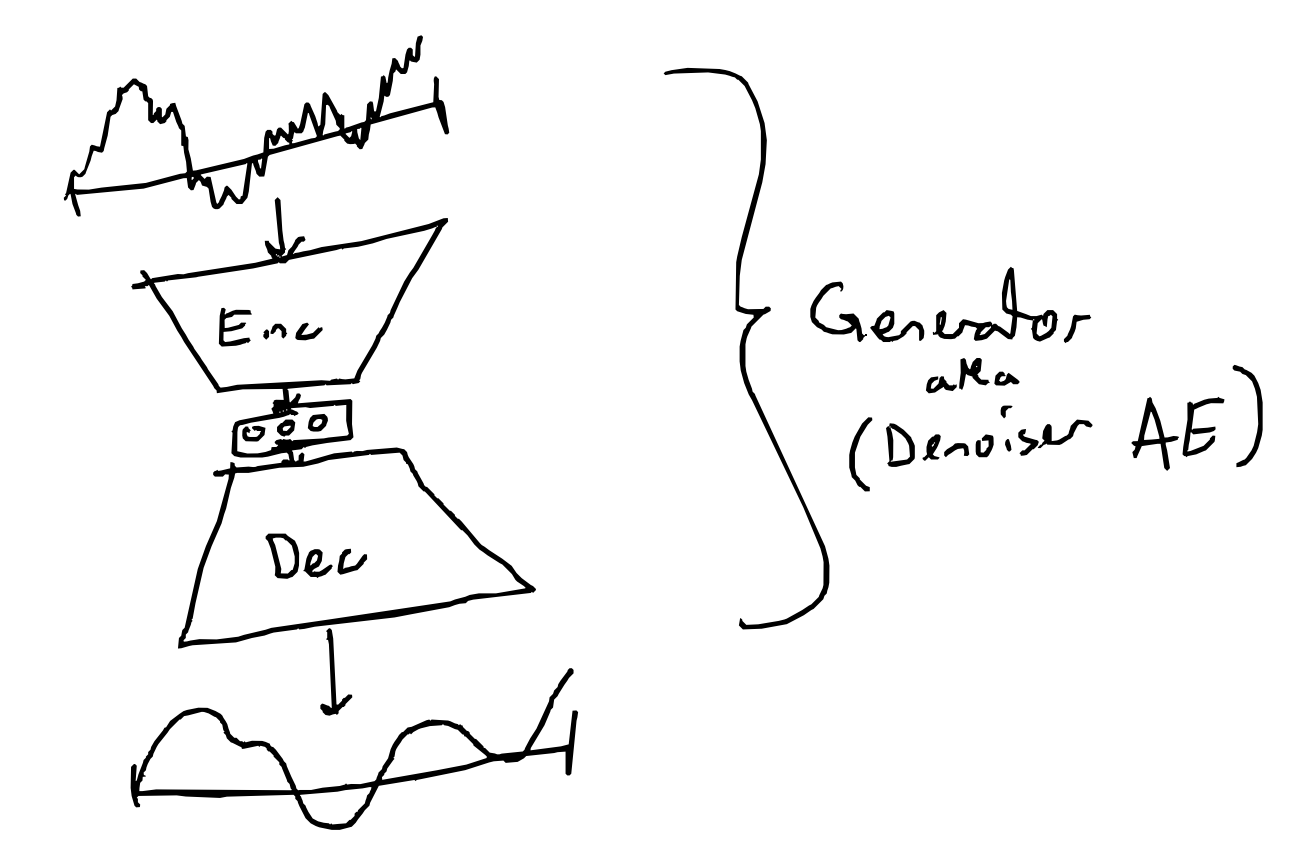 Enc
Dec
Generator
aka
(Denoiser AE)